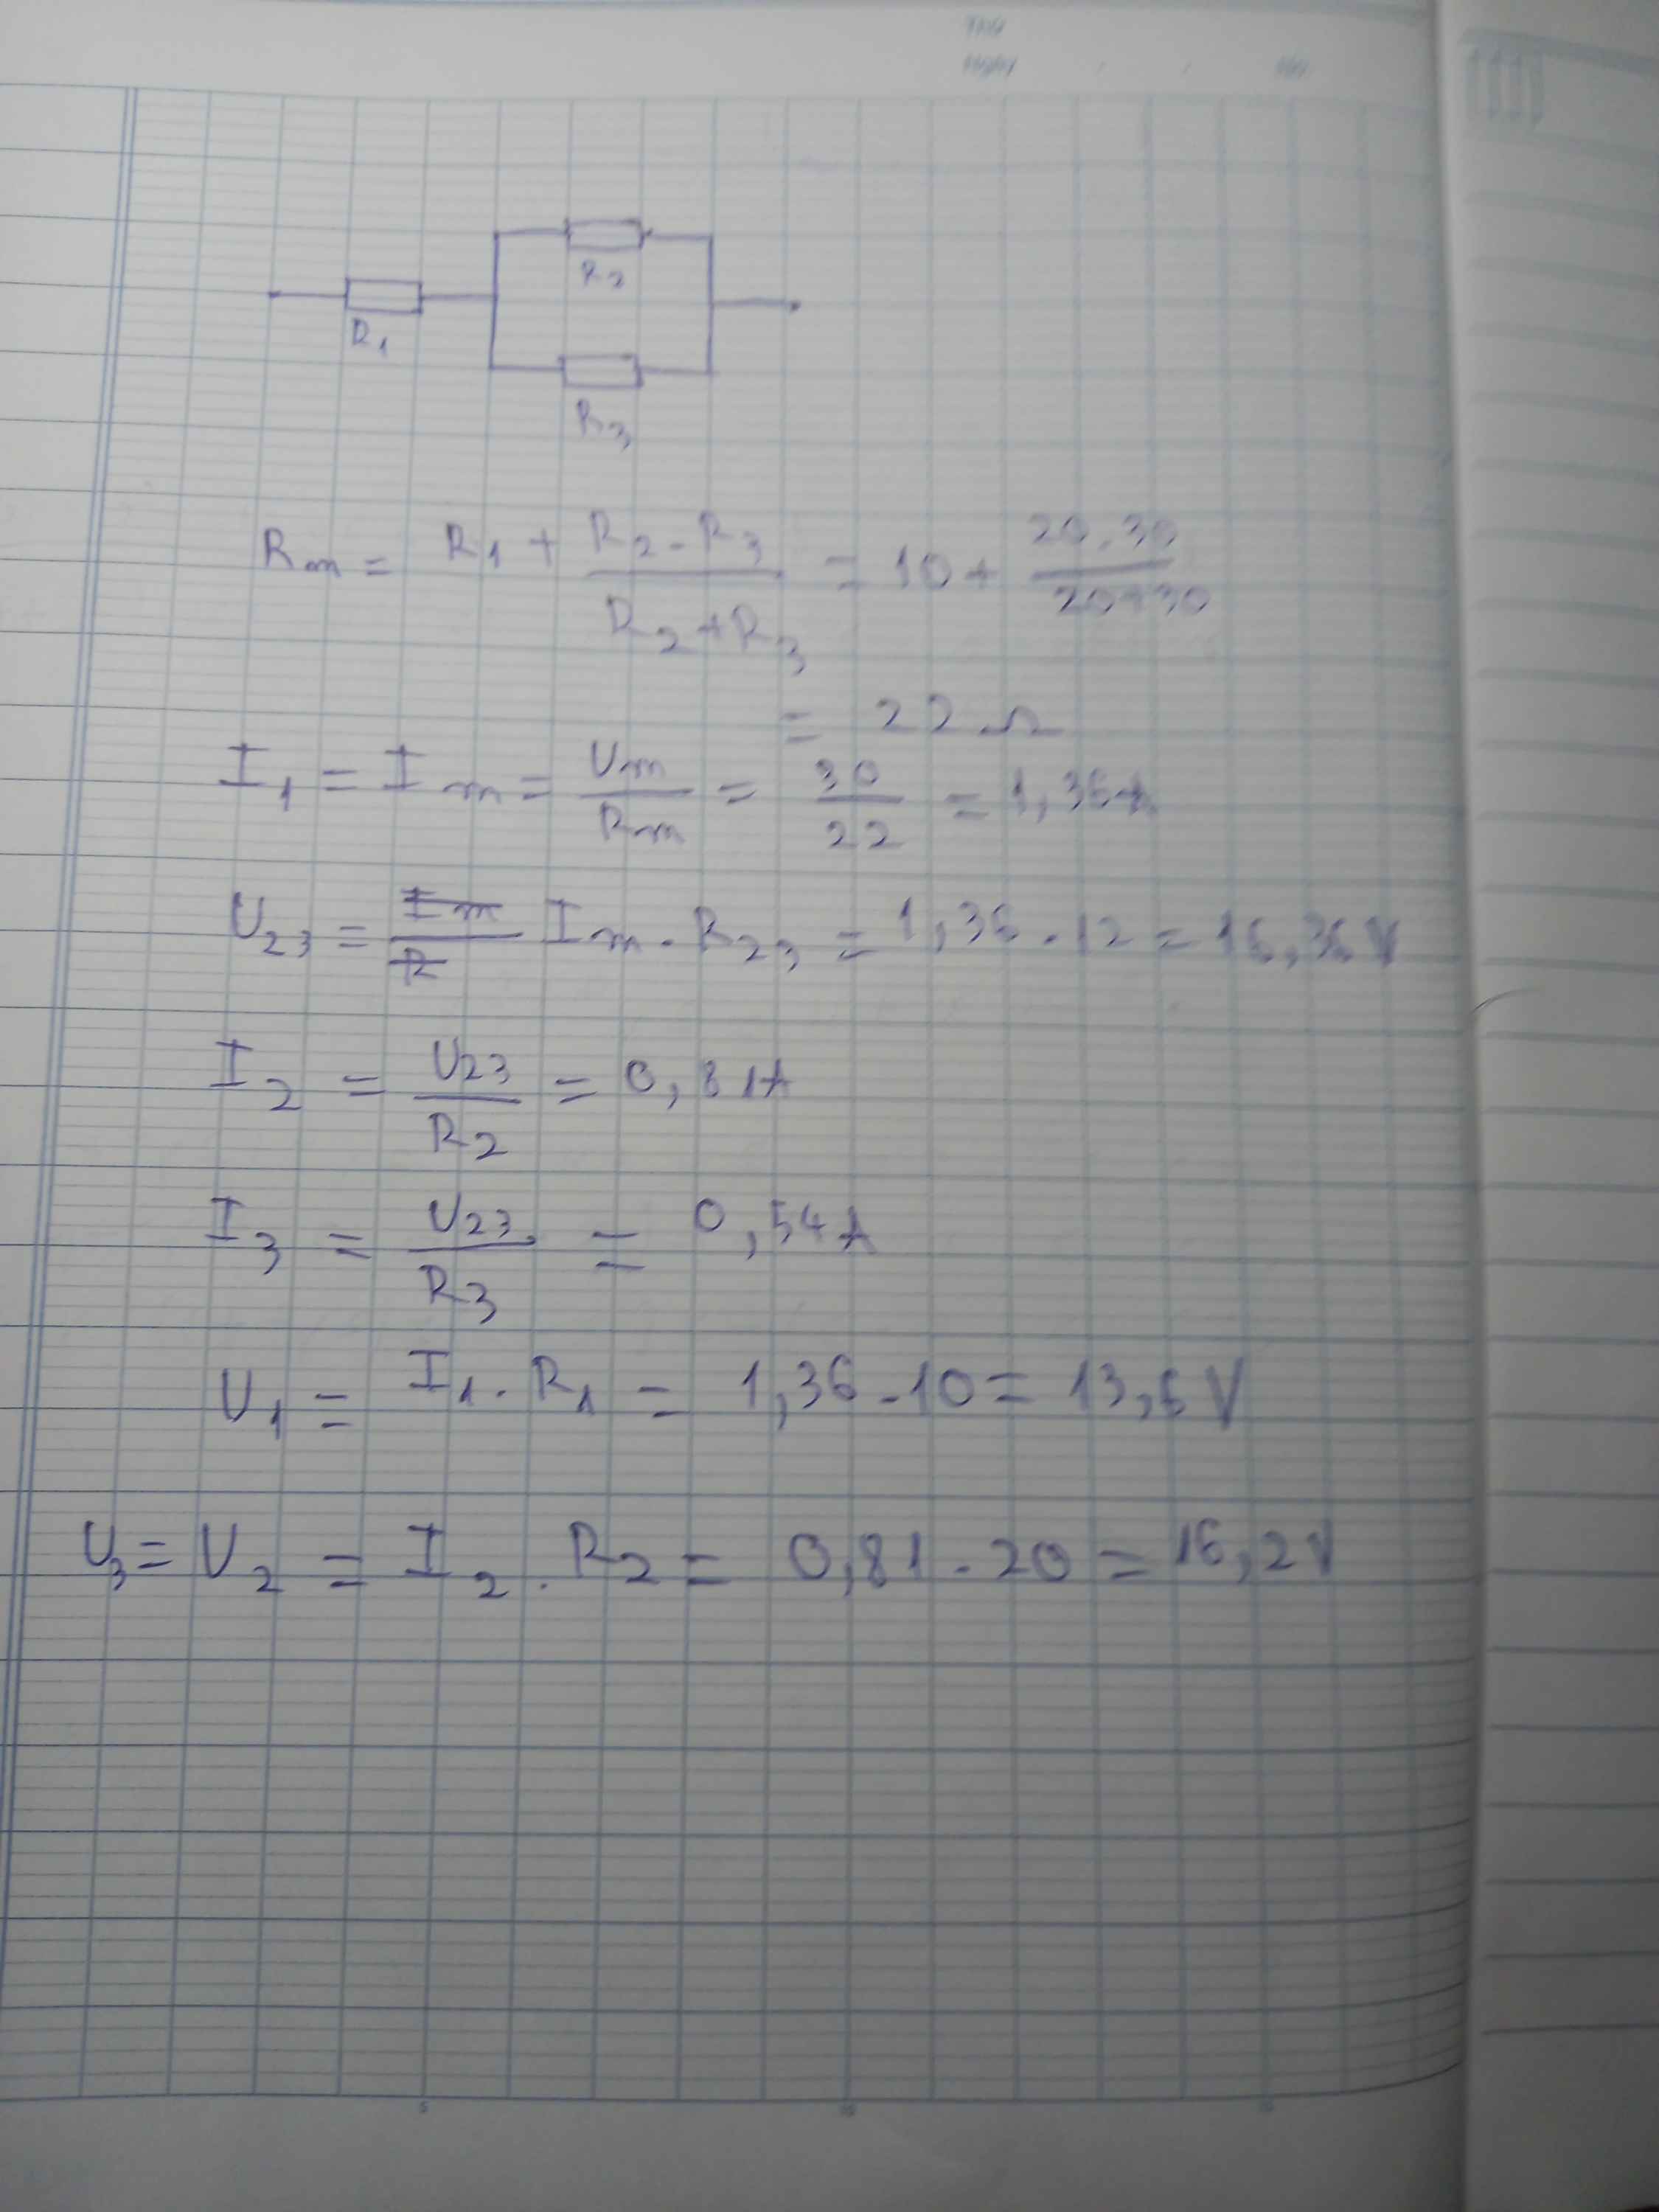 Thứ
Ngày
No.
R2
R1
R3
Rm = R1 + R2 . R3 / R2 + R3 = 10 + 20 . 30 / 20+30
= 22 Ω
I1 = Im = Um / Rm = 30 / 22 = 1,36A
U23 = Im / R Im . R23 = 1,36 . 12 = 16,36 V
I2 = U23 / R2 = 0,81A
I3 = U23 / R3 = 0,54A
U1 = I1 . R1 = 1,36 . 10 = 13,6 V
U3 = U2 = I2 . R2 = 0,81 . 20 = 16,2V
5
10
15